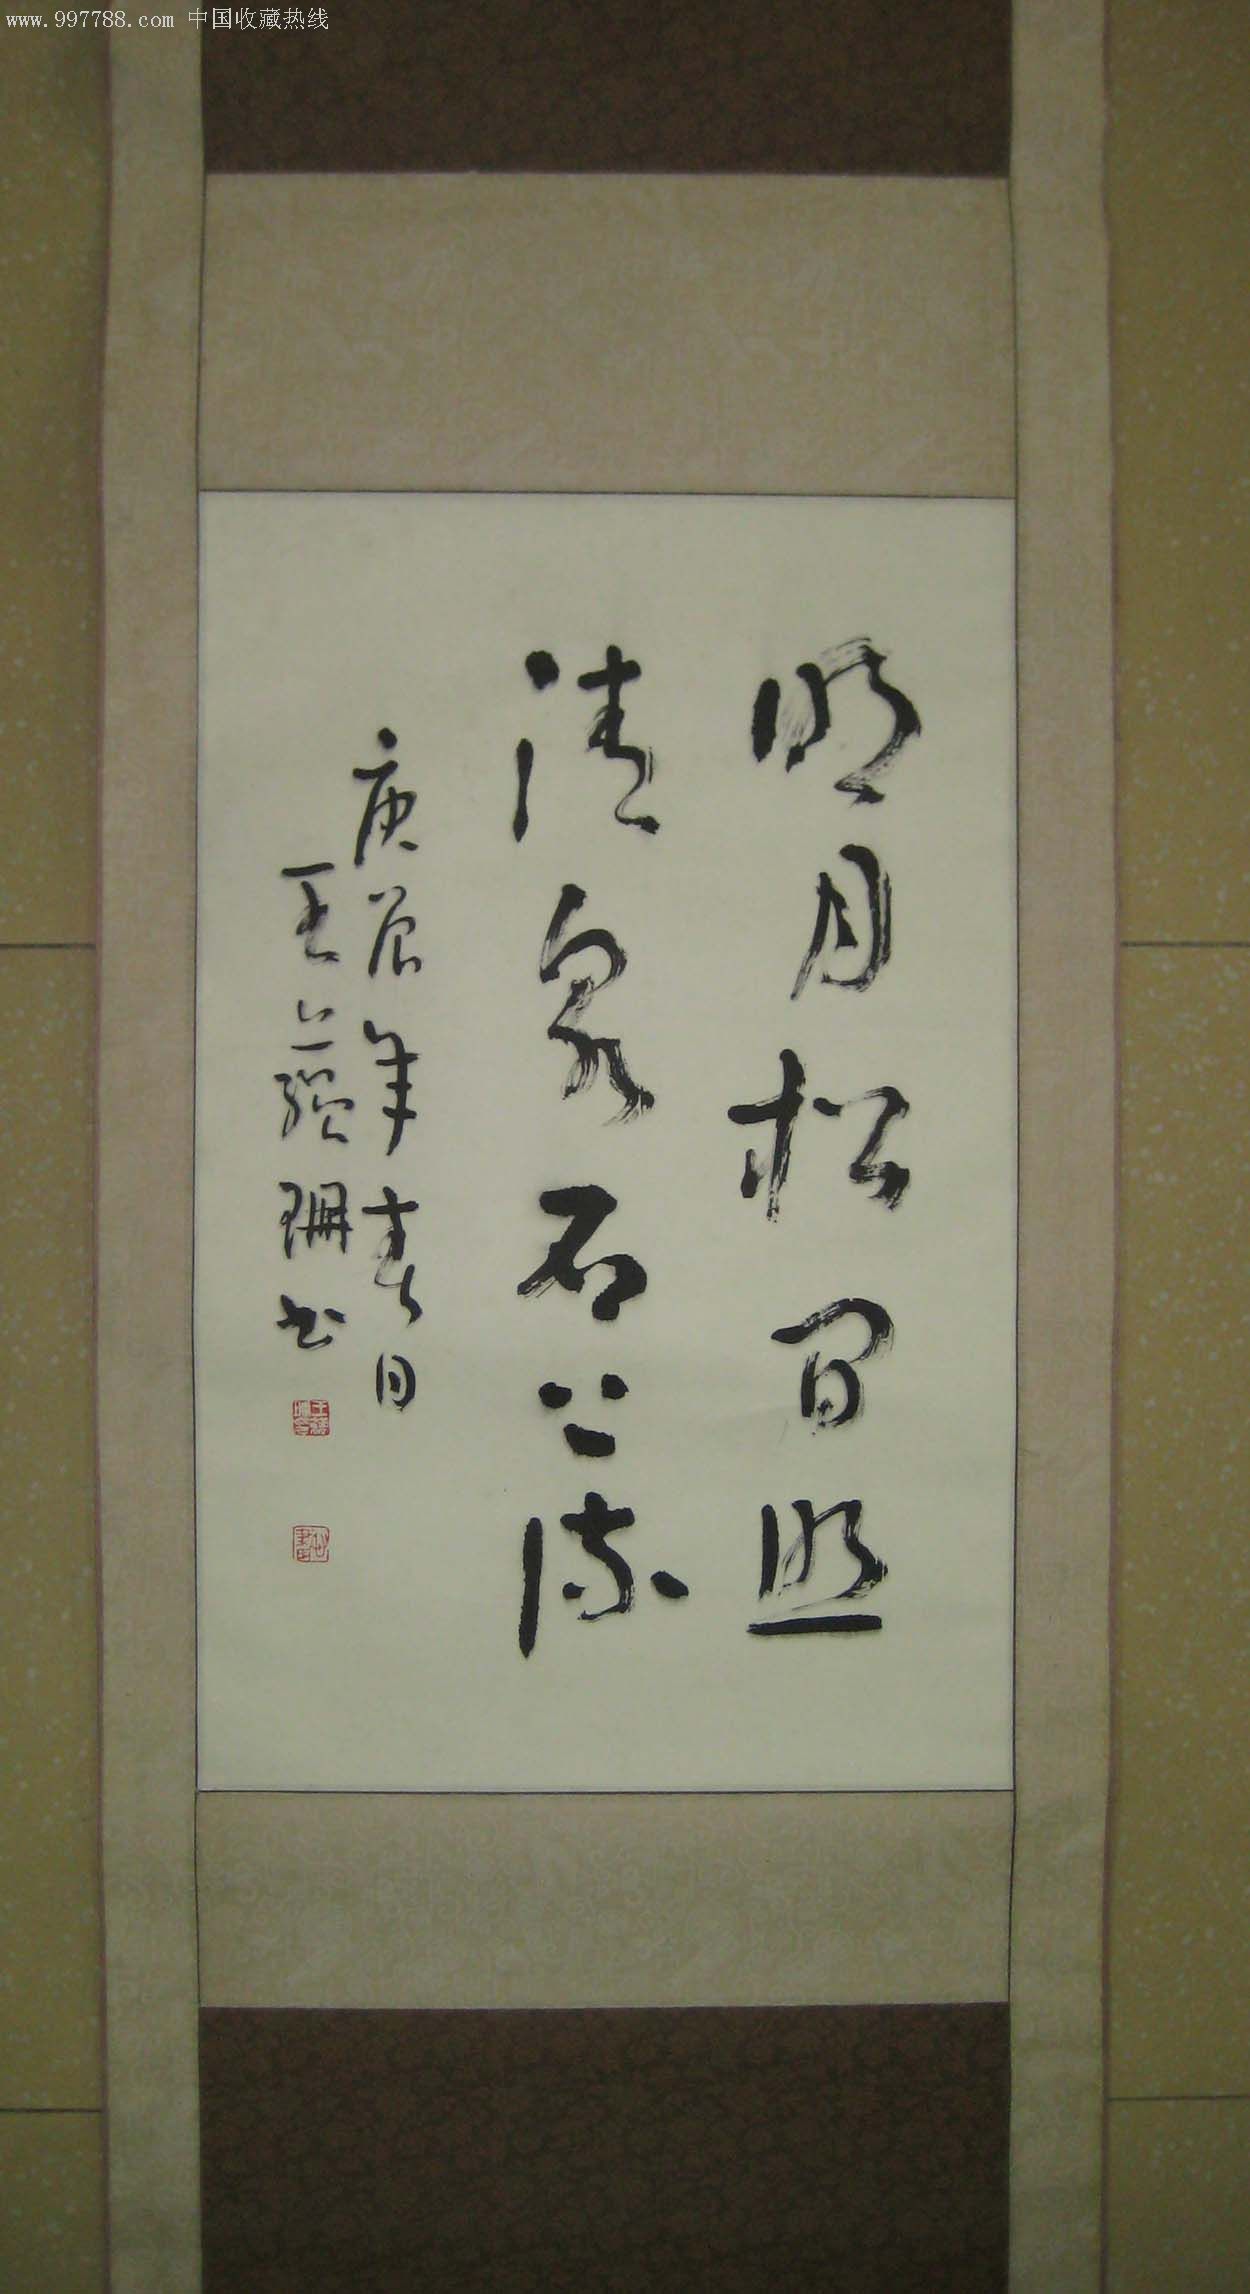 www.997788.com 中国收藏热线
明月松间照
清泉石上流
庚辰年春日
王蕴珊书